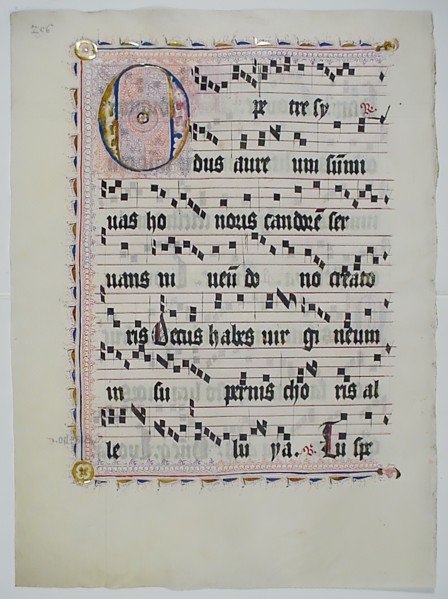 206
O pe tre sy R.
dus aure um sum̄i
uas ho noris candorē ser
uans in do no creato
ris Decus habes uir gi neum
in su pernis cho ris al
le lu ya. V. Tu spe